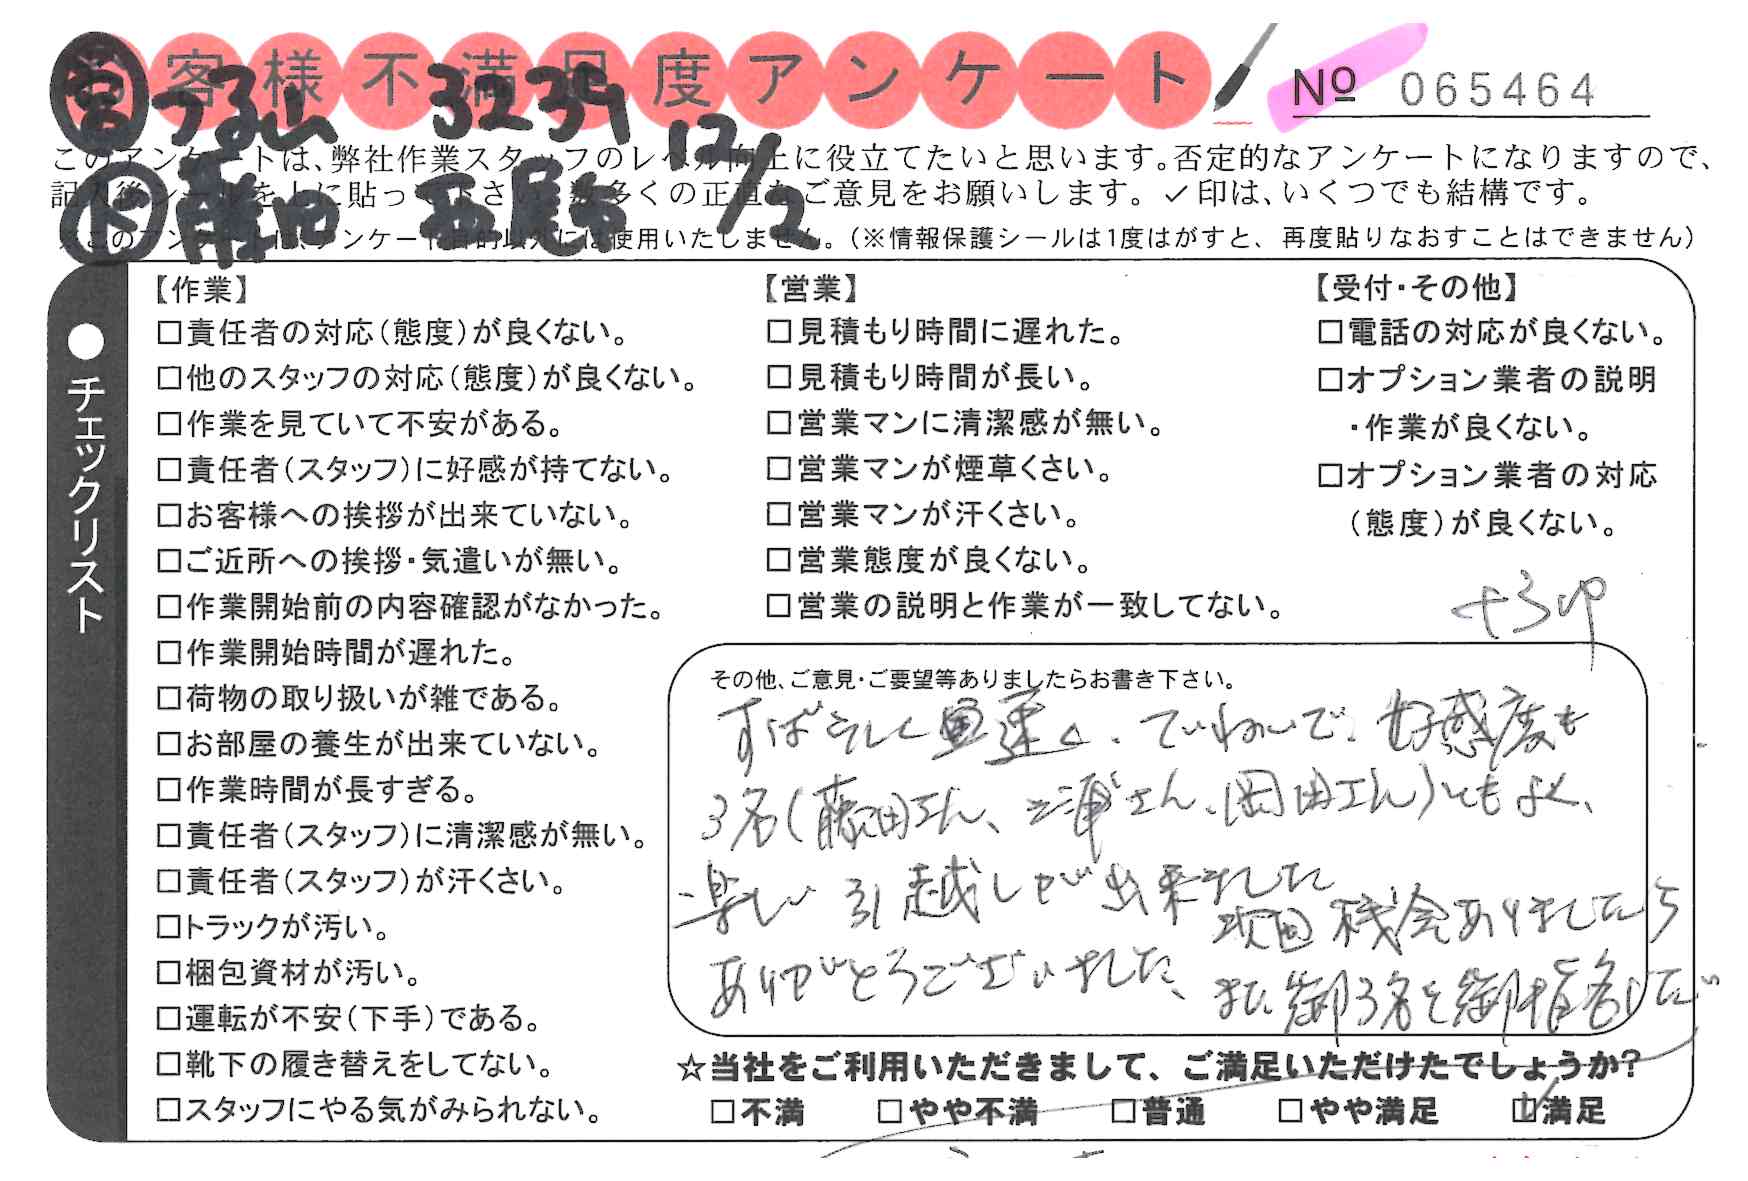 お客様不満足度アンケート
No 065464
つる山 3239 12/2
このアンケートは、弊社作業スタッフのレベル向上に役立てたいと思います。否定的なアンケートになりますので、
記入後シールを上に貼って下さい。数多くの正直なご意見をお願いします。✓印は、いくつでも結構です。
※このアンケートは、アンケート目的以外には使用いたしません。(※情報保護シールは1度はがすと、再度貼りなおすことはできません)
●チェックリスト
【作業】
□責任者の対応(態度)が良くない。
□他のスタッフの対応(態度)が良くない。
□作業を見ていて不安がある。
□責任者(スタッフ)に好感が持てない。
□お客様への挨拶が出来ていない。
□ご近所への挨拶・気遣いが無い。
□作業開始前の内容確認がなかった。
□作業開始時間が遅れた。
□荷物の取り扱いが雑である。
□お部屋の養生が出来ていない。
□作業時間が長すぎる。
□責任者(スタッフ)に清潔感が無い。
□責任者(スタッフ)が汗くさい。
□トラックが汚い。
□梱包資材が汚い。
□運転が不安(下手)である。
□靴下の履き替えをしてない。
□スタッフにやる気がみられない。
【営業】
□見積もり時間に遅れた。
□見積もり時間が長い。
□営業マンに清潔感が無い。
□営業マンが煙草くさい。
□営業マンが汗くさい。
□営業態度が良くない。
□営業の説明と作業が一致してない。
【受付・その他】
□電話の対応が良くない。
□オプション業者の説明
・作業が良くない。
□オプション業者の対応
(態度)が良くない。
その他、ご意見・ご要望等ありましたらお書き下さい。
すばらしく 、ていねいで、好感度も
3名(藤田さん、三浦さん、岡田さん)ともよく、
楽しい引越しが出来ました
ありがとうございました、
次回機会ありましたら
また御3名を御指名したい
☆当社をご利用いただきまして、ご満足いただけたでしょうか?
□不満 □やや不満 □普通 □やや満足 ☑満足